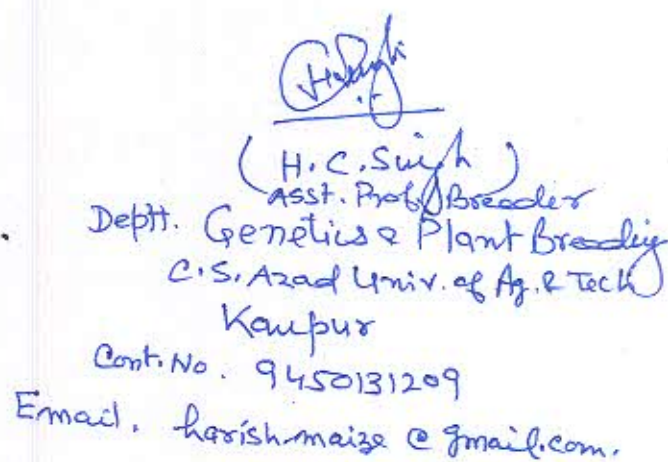 (H.C. Singh)
Asst. Prof./Breeder
Deptt. Genetics & Plant Breeding
C.S. Azad Univ. of Ag. & Tech
Kanpur
Cont. No. 9450131209
Email. harish.maize@gmail.com.